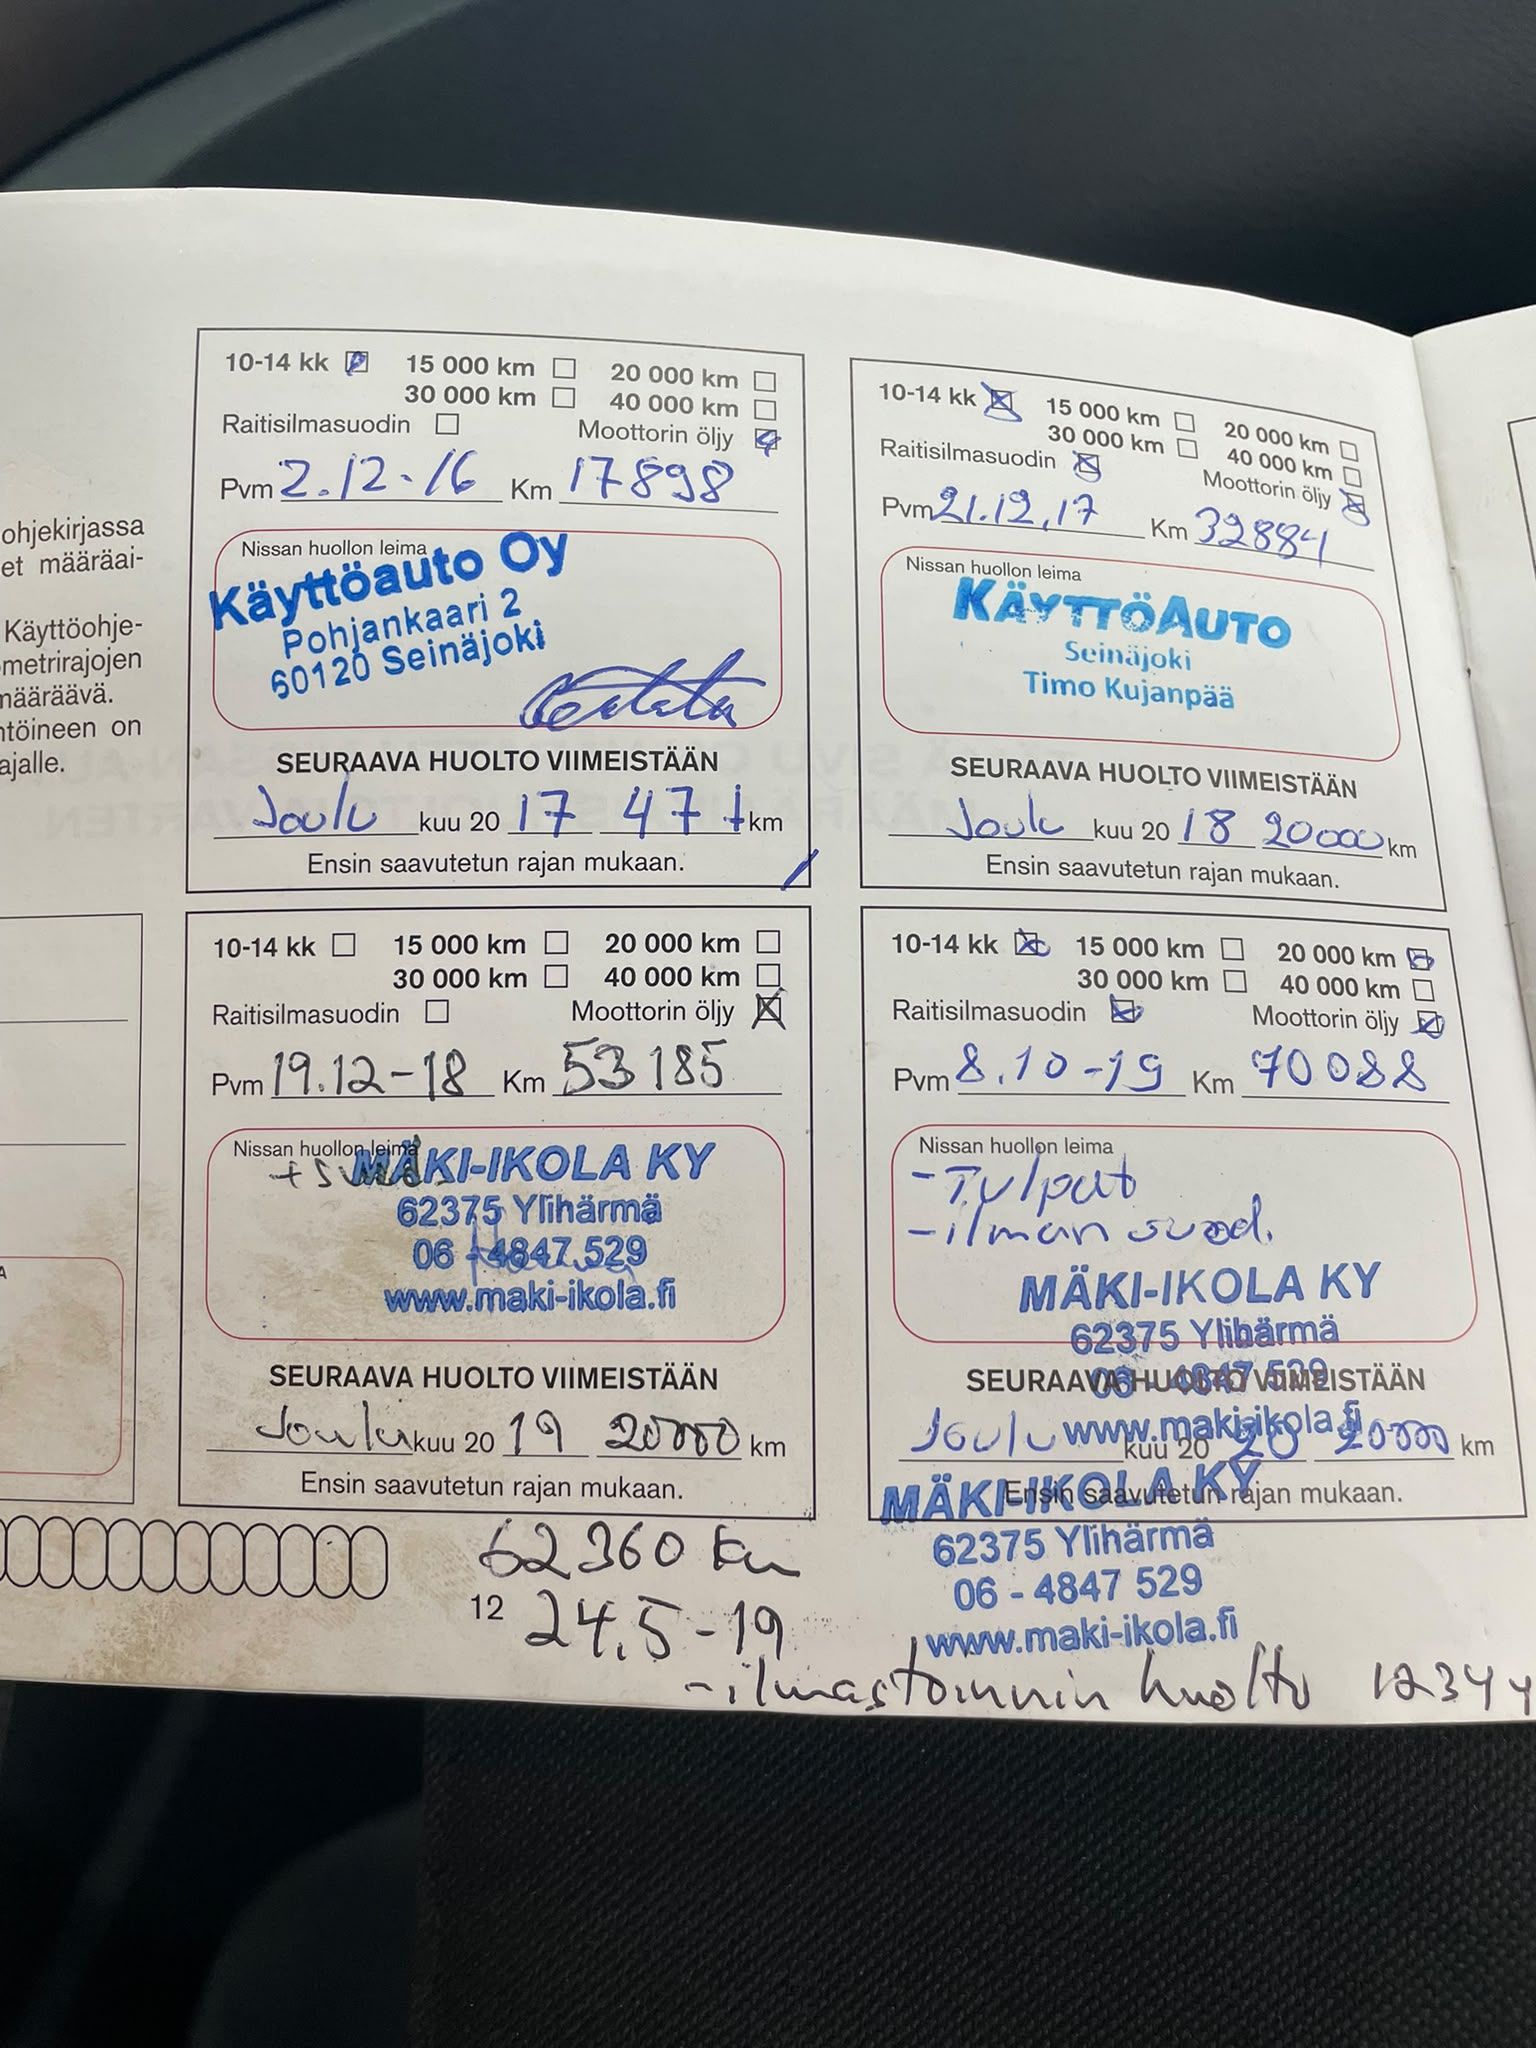 ohjekirjassa
et määräai-
Käyttöohje-
ometrirajojen
määräävä.
ntöineen on
ajalle.
10-14 kk 15 000 km 20 000 km
30 000 km 40 000 km
Raitisilmasuodin Moottorin öljy
Pvm 2.12.16 Km 17898
Nissan huollon leima
Käyttöauto Oy
Pohjankaari 2
60120 Seinäjoki
SEURAAVA HUOLTO VIIMEISTÄÄN
Joulu kuu 20 17 47 t km
Ensin saavutetun rajan mukaan.
10-14 kk 15 000 km 20 000 km
30 000 km 40 000 km
Raitisilmasuodin Moottorin öljy
Pvm 21.12.17 Km 32884
Nissan huollon leima
KÄYTTÖAUTO
Seinäjoki
Timo Kujanpää
SEURAAVA HUOLTO VIIMEISTÄÄN
Joulu kuu 20 18 20000 km
Ensin saavutetun rajan mukaan.
10-14 kk 15 000 km 20 000 km
30 000 km 40 000 km
Raitisilmasuodin Moottorin öljy
Pvm 19.12-18 Km 53185
Nissan huollon leima
MÄKI-IKOLA KY
62375 Ylihärmä
06 - 4847 529
www.maki-ikola.fi
SEURAAVA HUOLTO VIIMEISTÄÄN
Joulu kuu 20 19 20000 km
Ensin saavutetun rajan mukaan.
10-14 kk 15 000 km 20 000 km
30 000 km 40 000 km
Raitisilmasuodin Moottorin öljy
Pvm 8.10-19 Km 70088
Nissan huollon leima
- Tulpat
- ilman suod.
MÄKI-IKOLA KY
62375 Ylihärmä
06 - 4847 529
SEURAAVA HUOLTO VIIMEISTÄÄN
www.maki-ikola.fi
Joulu kuu 20 20 20000 km
Ensin saavutetun rajan mukaan.
MÄKI-IKOLA KY
62375 Ylihärmä
06 - 4847 529
www.maki-ikola.fi
62360 km
12 24.5-19
- ilmastoinnin huolto 1234y